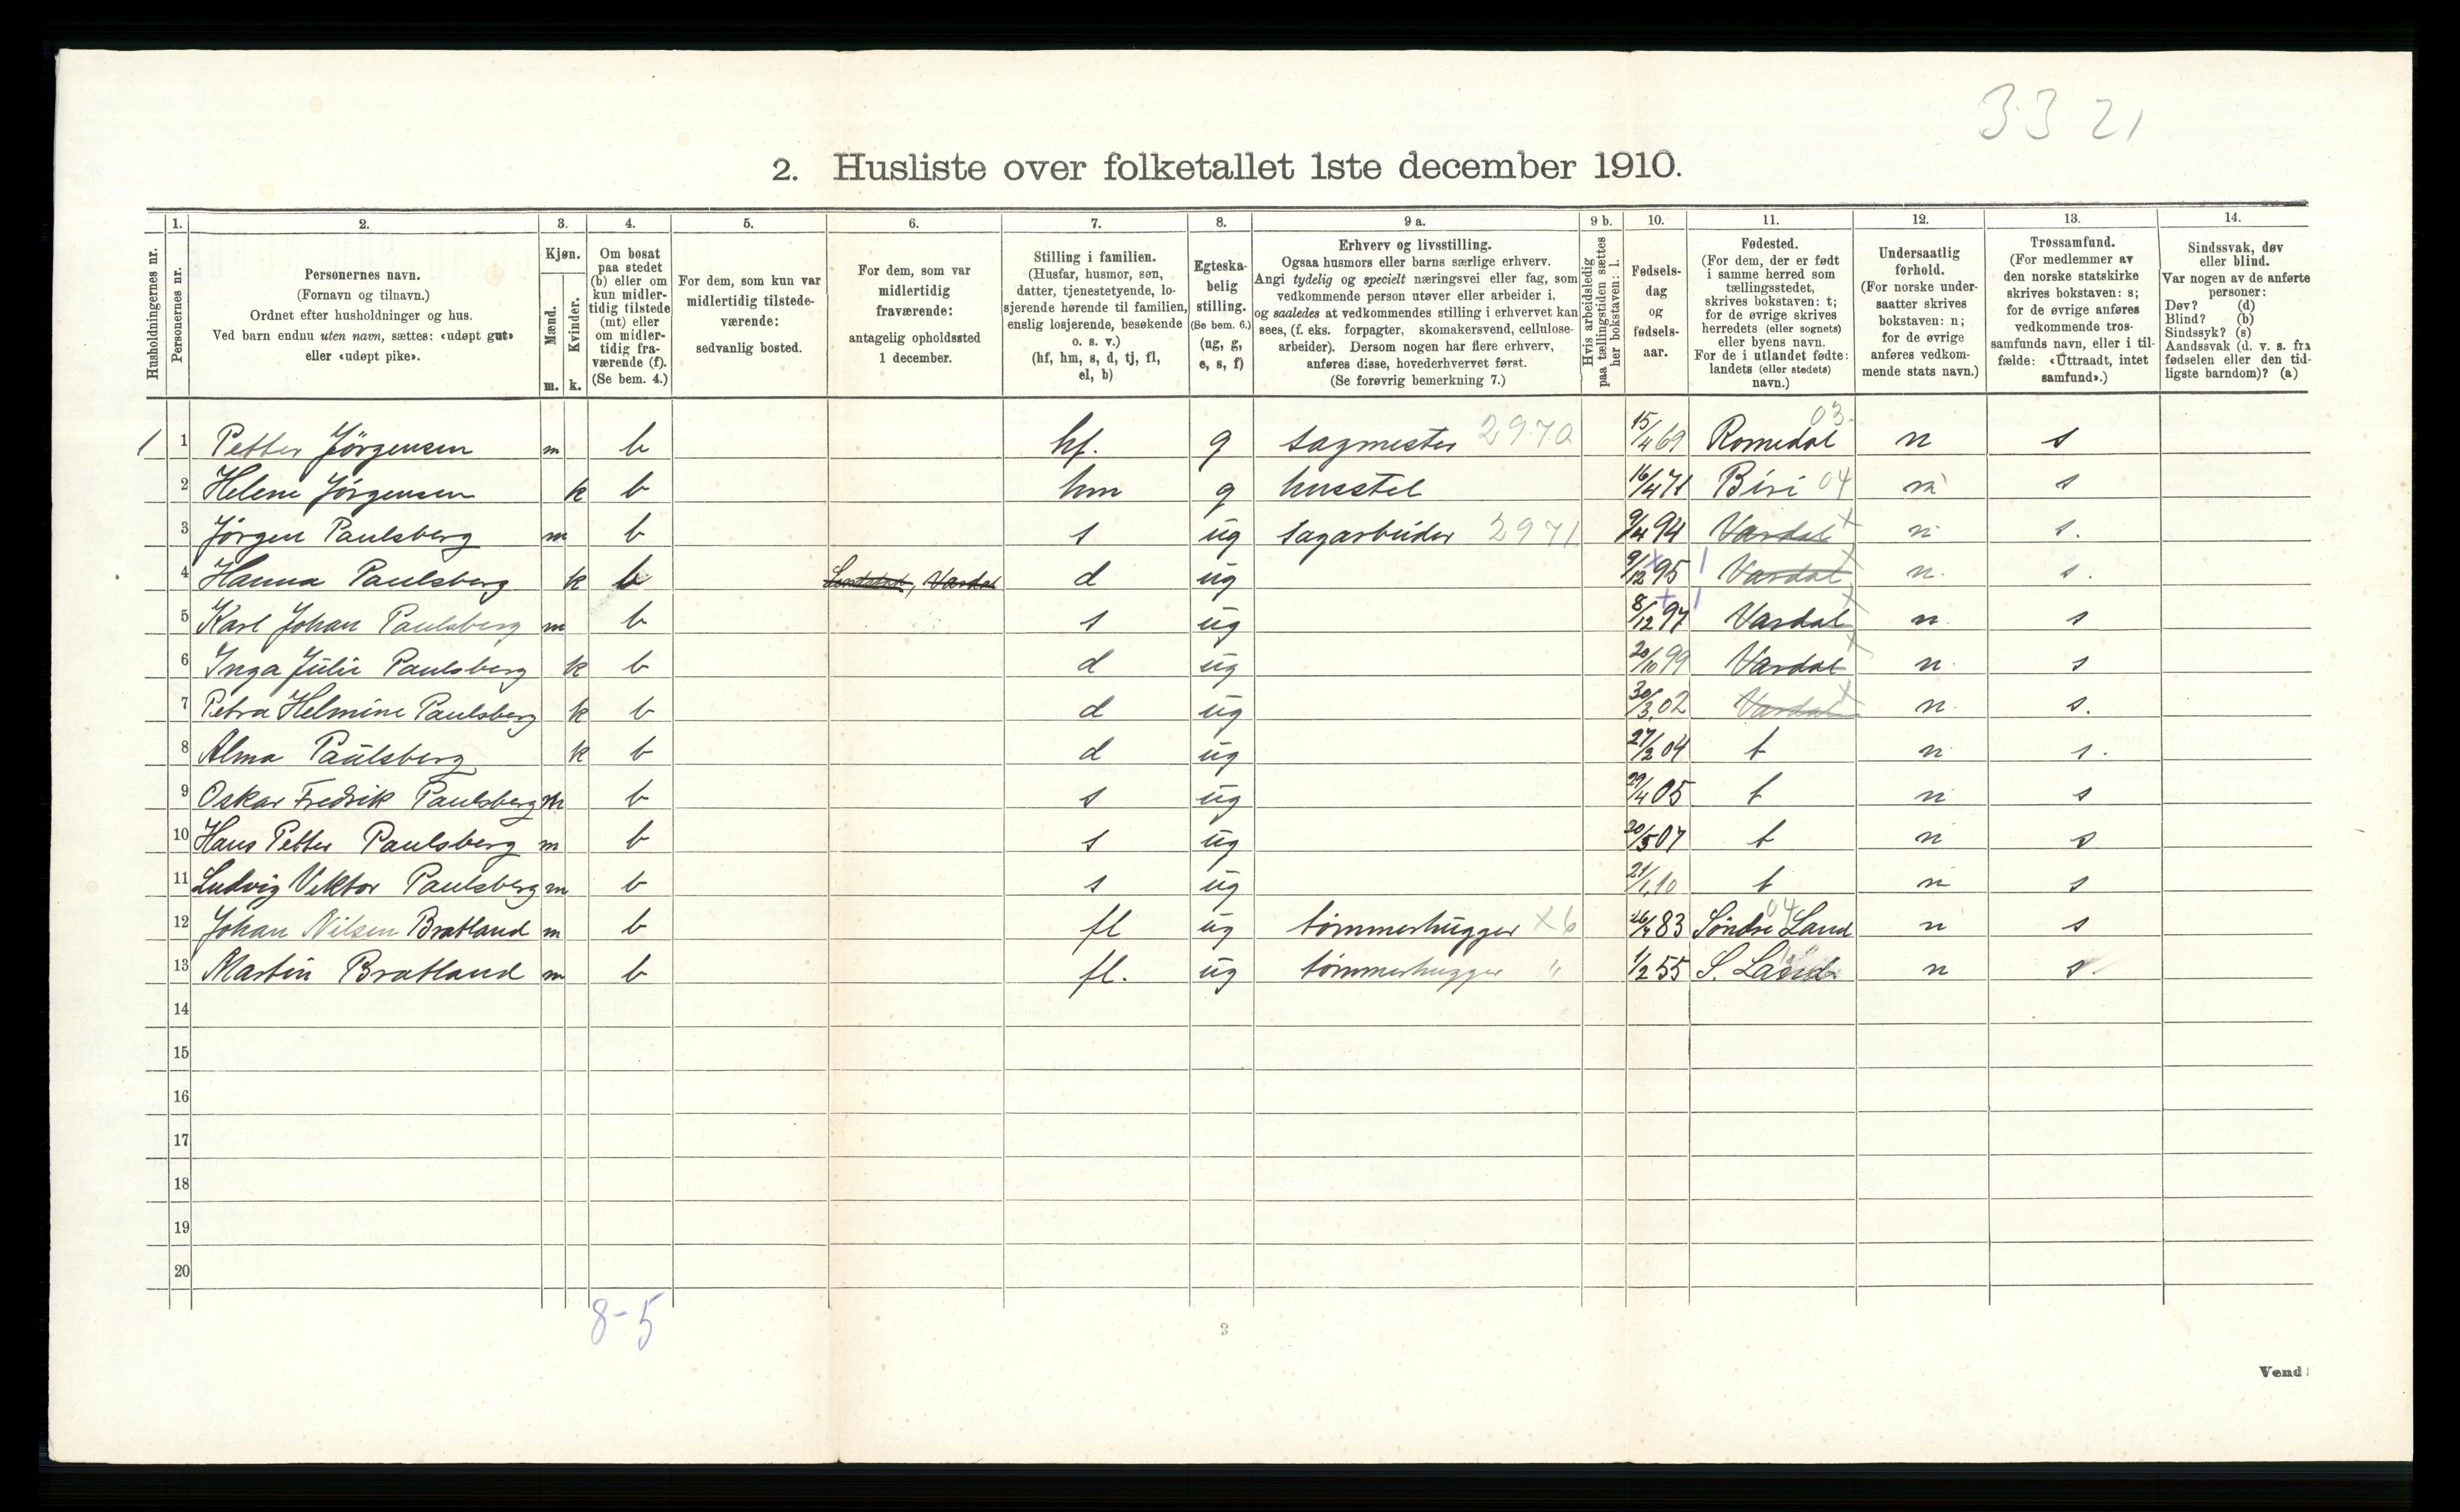 33 21
2. Husliste over folketallet 1ste december 1910.
Husholdningernes nr.
1. Personernes nr.
2. Personernes navn.
(Fornavn og tilnavn.)
Ordnet efter husholdninger og hus.
Ved barn endnu uten navn, sættes: «udøpt gut»
eller «udøpt pike».
3. Kjøn.
Mænd. m.
Kvinder. k.
4. Om bosat
paa stedet
(b) eller om
kun midler-
tidig tilstede
(mt) eller
om midler-
tidig fra-
værende (f).
(Se bem. 4.)
5. For dem, som kun var
midlertidig tilstede-
værende:
sedvanlig bosted.
6. For dem, som var
midlertidig
fraværende:
antagelig opholdssted
1 december.
7. Stilling i familien.
(Husfar, husmor, søn,
datter, tjenestetyende, lo-
sjerende hørende til familien,
enslig losjerende, besøkende
o. s. v.)
(hf, hm, s, d, tj, fl,
el, b)
8. Egteska-
belig
stilling.
(Se bem. 6.)
(ug, g,
e, s, f)
9 a. Erhverv og livsstilling.
Ogsaa husmors eller barns særlige erhverv.
Angi tydelig og specielt næringsvei eller fag, som
vedkommende person utøver eller arbeider i,
og saaledes at vedkommendes stilling i erhvervet kan
sees, (f. eks. forpagter, skomakersvend, cellulose-
arbeider). Dersom nogen har flere erhverv,
anføres disse, hovederhvervet først.
(Se forøvrig bemerkning 7.)
9 b. Hvis arbeidsledig
paa tællingstiden sættes
her bokstaven: l.
10. Fødsels-
dag
og
fødsels-
aar.
11. Fødested.
(For dem, der er født
i samme herred som
tællingsstedet,
skrives bokstaven: t;
for de øvrige skrives
herredets (eller sognets)
eller byens navn.
For de i utlandet fødte:
landets (eller stedets)
navn.)
12. Undersaatlig
forhold.
(For norske under-
saatter skrives
bokstaven: n;
for de øvrige
anføres vedkom-
mende stats navn.)
13. Trossamfund.
(For medlemmer av
den norske statskirke
skrives bokstaven: s;
for de øvrige anføres
vedkommende tros-
samfunds navn, eller i til-
fælde: «Uttraadt, intet
samfund».)
14. Sindssvak, døv
eller blind.
Var nogen av de anførte
personer:
Døv? (d)
Blind? (b)
Sindssyk? (s)
Aandssvak (d. v. s. fra
fødselen eller den tid-
ligste barndom)? (a)
1 1 Petter Jörgensen m b hf. g sagmester 2970 15/4 69 Romedal 03 n s
2 Helene Jörgensen k b hm g husstel 16/4 71 Biri 04 n s
3 Jörgen Paulsberg m b s ug sagarbeider 2971 9/4 94 Vardal x n s.
4 Hanna Paulsberg k b Vardal d ug 9/12 95 Vardal x n. s.
5 Karl Johan Paulsberg m b s ug 8/12 97 Vardal x n. s
6 Inga Julie Paulsberg k b d ug 20/10 99 Vardal x n. s
7 Petra Helmine Paulsberg k b d ug 30/3 02 Vardal x n. s.
8 Alma Paulsberg k b d ug 27/2 04 t n s.
9 Oskar Fredrik Paulsberg m b s ug 29/4 05 t n s
10 Hans Petter Paulsberg m b s ug 20/5 07 t n s
11 Ludvig Viktor Paulsberg m b s ug 21/1 10 t n s
12 Johan Nilsen Bratland m b fl ug tømmerhugger x6 83 Søndre Land 04 n s
13 Martin Bratland m b fl. ug tømmerhugger " 1/2 55 S. Land n s.
14
15
16
17
18
19
20
8-5
3
Vend